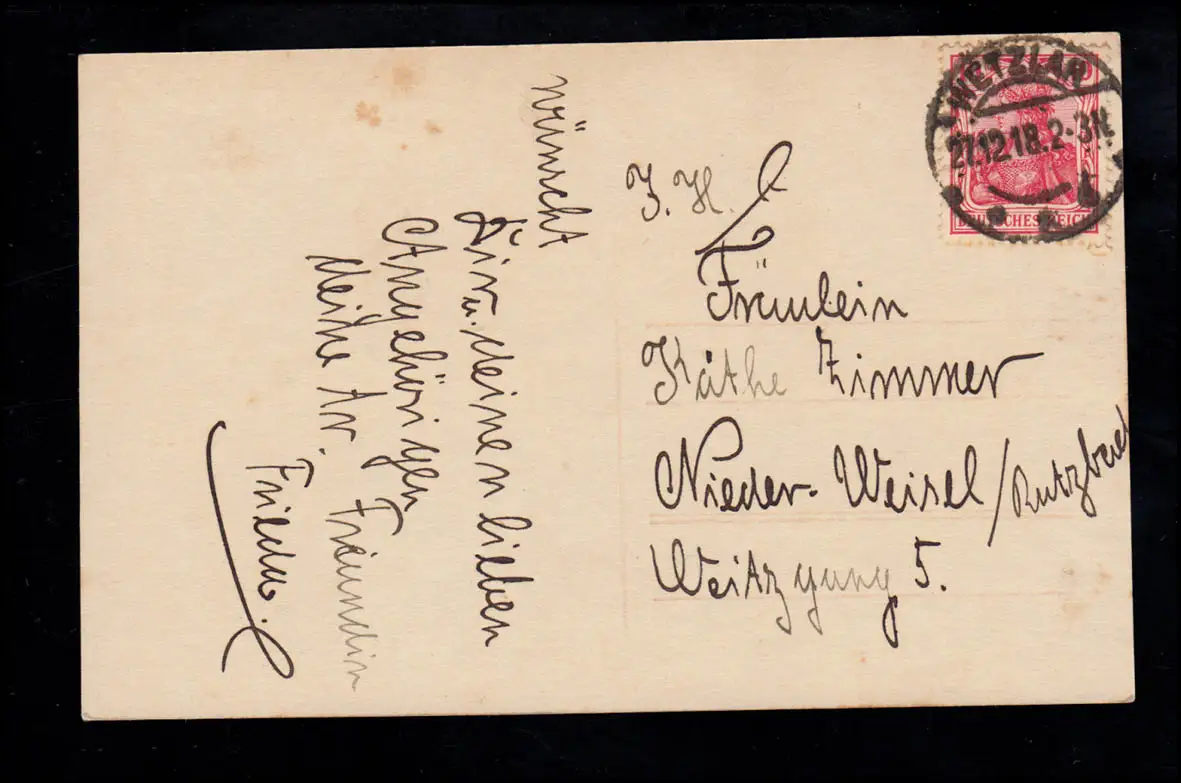 WETZLAR
27.12.18.2-3N.
DEUTSCHES REICH
J. H.
Fräulein
Käthe Zimmer
Nieder-Weisel /
Weitzgang 5.
wünscht
Dir u. deinen lieben
Angehörigen
deine tr. Freundin
Frieda.